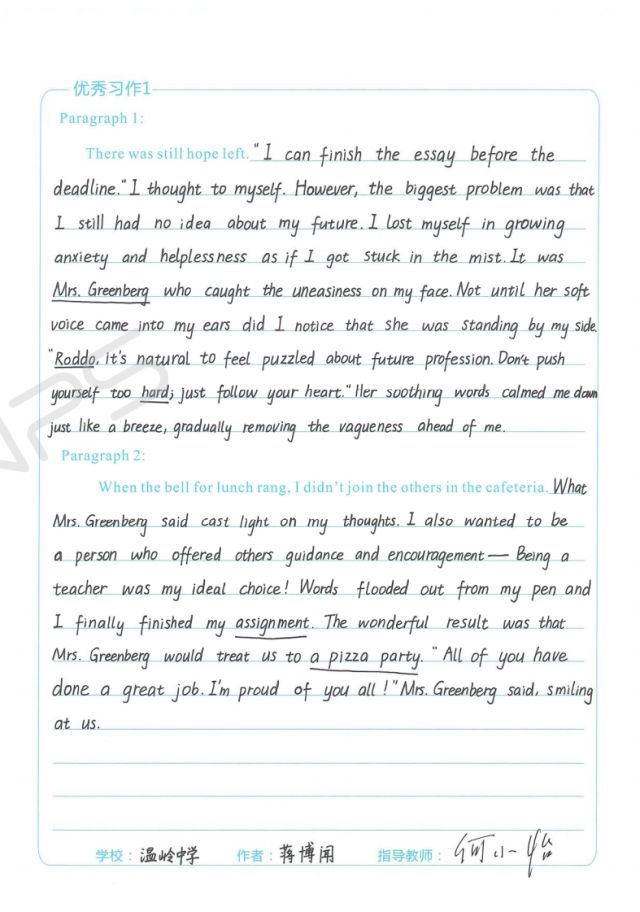 优秀习作1
Paragraph 1:
There was still hope left. "I can finish the essay before the
deadline." I thought to myself. However, the biggest problem was that
I still had no idea about my future. I lost myself in growing
anxiety and helplessness as if I got stuck in the mist. It was
Mrs. Greenberg who caught the uneasiness on my face. Not until her soft
voice came into my ears did I notice that she was standing by my side.
"Roddo, it's natural to feel puzzled about future profession. Don't push
yourself too hard; just follow your heart." Her soothing words calmed me down
just like a breeze, gradually removing the vagueness ahead of me.
Paragraph 2:
When the bell for lunch rang, I didn't join the others in the cafeteria. What
Mrs. Greenberg said cast light on my thoughts. I also wanted to be
a person who offered others guidance and encouragement — Being a
teacher was my ideal choice! Words flooded out from my pen and
I finally finished my assignment. The wonderful result was that
Mrs. Greenberg would treat us to a pizza party. "All of you have
done a great job. I'm proud of you all!" Mrs. Greenberg said, smiling
at us.
学校：温岭中学 作者：蒋博闻 指导教师：何小